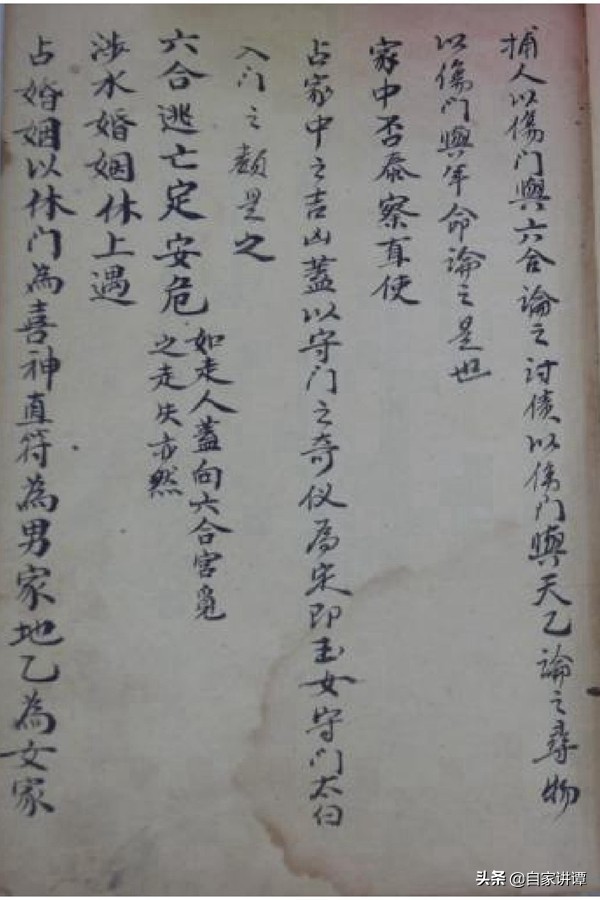 捕人以傷門與六合論之討債以傷門與天乙論之尋物
以傷門與年命論之是也
家中否泰察直使
占家中之吉凶蓋以守门之奇仪為定即玉女守门太白
入门之類是之
六合逃亡定安危
如走人蓋向六合宮覓
之走失亦然
涉水婚姻休上遇
占婚姻以休门為喜神直符為男家地乙為女家
头条 @自家讲谭